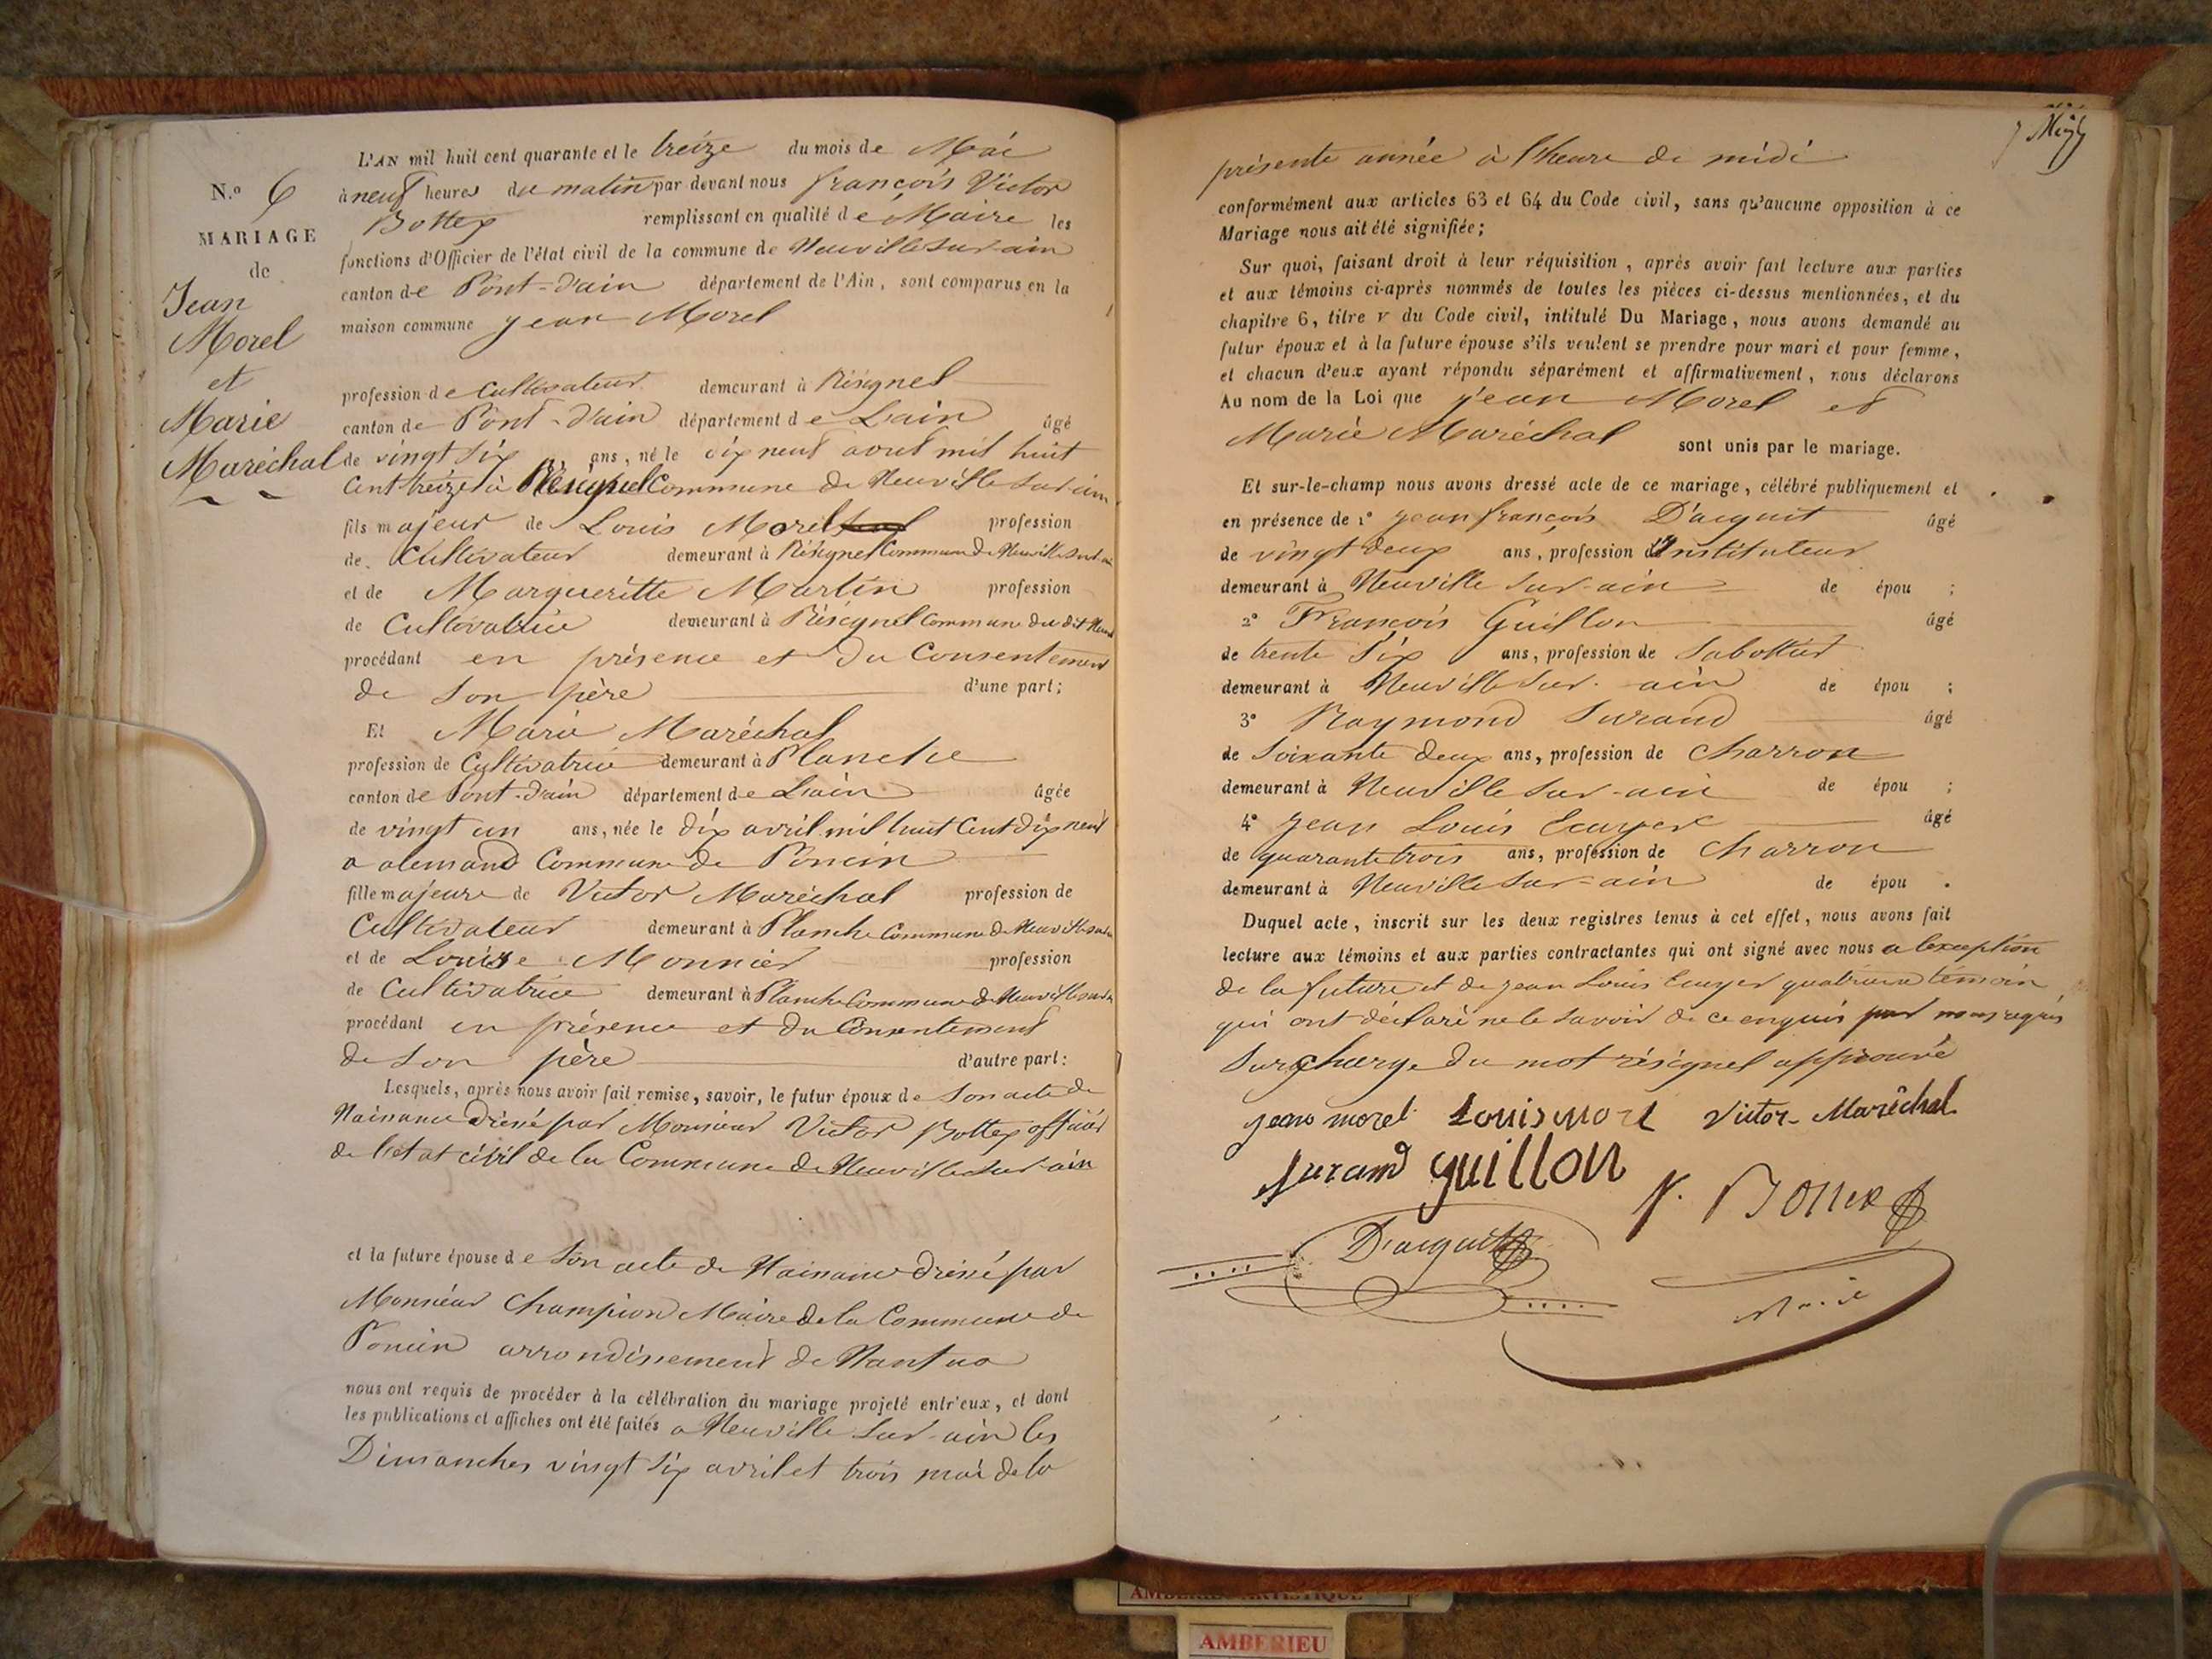 N.º 6
MARIAGE
de
Jean
Morel
et
Marie
Maréchal
L'AN mil huit cent quarante et le treize du mois de Mai
à neuf heures du matin par devant nous françois Victor
Bottex remplissant en qualité de Maire les
fonctions d'Officier de l'état civil de la commune de Neuville sur-ain
canton de Pont-d'ain département de l'Ain, sont comparus en la
maison commune jean Morel
profession de Cultivateur demeurant à Résignel
canton de Pont-d'ain département de L'ain âgé
de vingt six ans, né le dix neuf avril mil huit
Cent treize à Résignel Commune de Neuville sur-ain
fils majeur de Louis Morel profession
de Cultivateur demeurant à Résignel Commune de Neuville sur-ain
et de Margueritte Martin profession
de Cultivatrice demeurant à Résignel Commune du dit Neuv
procédant en présence et du Consentement
de son père d'une part;
Et Marie Maréchal
profession de Cultivatrice demeurant à Planche
canton de Pont-d'ain département de L'ain âgée
de vingt un ans, née le dix avril mil huit Cent dix neuf
a alemand Commune de Poncin
fille majeure de Victor Maréchal profession de
Cultivateur demeurant à Planche Commune de Neuville sur-ain
et de Louise Monnier profession
de Cultivatrice demeurant à Planche Commune de Neuville sur-ain
procédant en présence et du Consentement
de son père d'autre part:
Lesquels, après nous avoir fait remise, savoir, le futur époux de son acte de
Naissance dressé par Monsieur Victor Bottex officier
de l'etat civil de la Commune de Neuville sur-ain
et la future épouse de son acte de Naissance dressé par
Monsieur Champion Maire de la Commune de
Poncin arrondissement de Nantua
nous ont requis de procéder à la célébration du mariage projeté entr'eux, et dont
les publications et affiches ont été faites a Neuville sur-ain les
Dimanches vingt six avril et trois mai de la
présente année à l'heure de midi
conformément aux articles 63 et 64 du Code civil, sans qu'aucune opposition à ce
Mariage nous ait été signifiée;
Sur quoi, faisant droit à leur réquisition, après avoir fait lecture aux parties
et aux témoins ci-après nommés de toutes les pièces ci-dessus mentionnées, et du
chapitre 6, titre V du Code civil, intitulé Du Mariage, nous avons demandé au
futur époux et à la future épouse s'ils veulent se prendre pour mari et pour femme,
et chacun d'eux ayant répondu séparément et affirmativement, nous déclarons
Au nom de la Loi que jean Morel et
Marie Maréchal sont unis par le mariage.
Et sur-le-champ nous avons dressé acte de ce mariage, célébré publiquement et
en présence de 1º jean françois D'acquit âgé
de vingt deux ans, profession d'Instituteur
demeurant à Neuville sur-ain de épou ;
2º François Guillon âgé
de trente six ans, profession de Sabottier
demeurant à Neuville sur-ain de épou ;
3º Raymond Surand âgé
de soixante deux ans, profession de Charron
demeurant à Neuville sur-ain de épou ;
4º jean Louis Ecuyer âgé
de quarante trois ans, profession de Charron
demeurant à Neuville sur-ain de épou .
Duquel acte, inscrit sur les deux registres tenus à cet effet, nous avons fait
lecture aux témoins et aux parties contractantes qui ont signé avec nous a lexception
de la future et de jean Louis Ecuyer quatrieme temoin
qui ont déclaré ne le savoir de ce enquis par nous requis
Surcharge du mot résignel approuvé
jean morel Louis morel Victor Maréchal
Surand guillon
V. Bottex
D'acquit
Maire
AMBERIEU